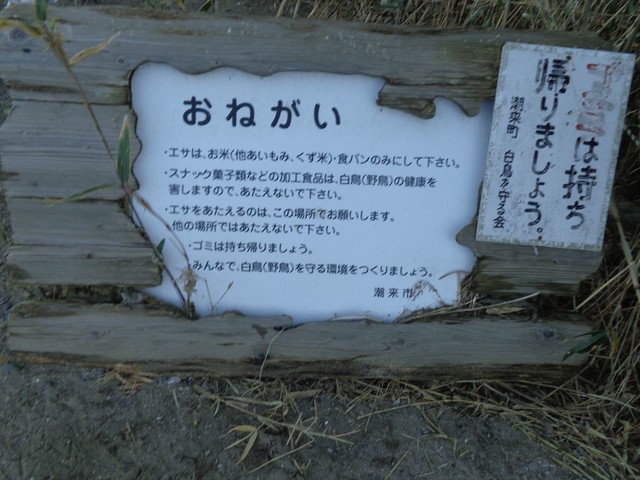 おねがい
・エサは、お米(他あいもみ、くず米)・食パンのみにして下さい。
・スナック菓子類などの加工食品は、白鳥(野鳥)の健康を
害しますので、あたえないで下さい。
・エサをあたえるのは、この場所でお願いします。
他の場所ではあたえないで下さい。
・ゴミは持ち帰りましょう。
・みんなで、白鳥(野鳥)を守る環境をつくりましょう。
潮来市
は持ち
帰りましょう。
潮来町 白鳥を守る会